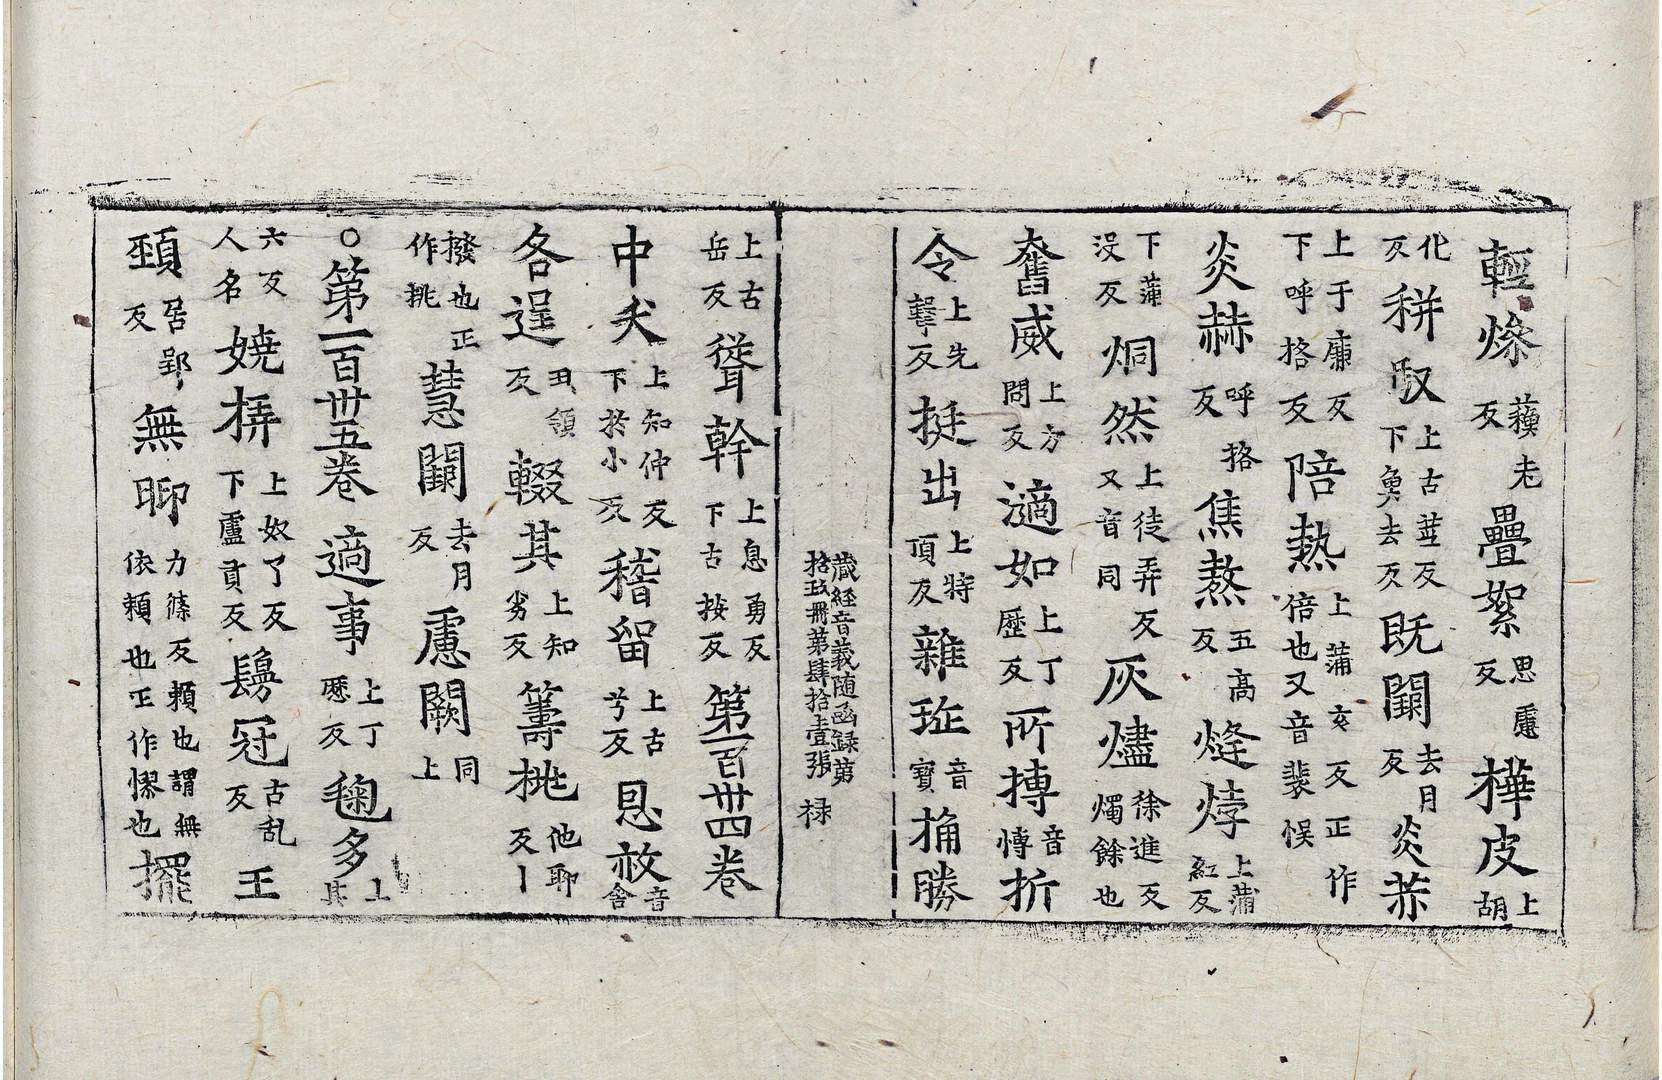 輕㷮蘓老反疊絮思慮反樺皮上胡
化反秤馭上古並反下魚去反既闋去月反炎赫
上于廉反下呼格反陪熱上蒲亥反正作倍也又音裴悮
炎赫呼格反焦熬五高反㷭㶿上蒲紅反
下蒲沒反烔然上徒弄反又音同灰燼徐進反燭餘也
奮威上方問反適如上丁歷反所摶音慱折
令上先擊反挺出上特頂反雜珤音寶捔勝
蔵經音義随函録第
拾玖冊第肆拾壹張 禄
上古岳反聳幹上息勇反下古按反第一百卅四卷
中夭上知仲反下於小反稽留上古兮反恩赦音舍
各逞丑領反輟其上知劣反籌桃他聊反丨
撥也正作挑慧闋去月反慮闕同上
○第一百卅五卷適事上丁歷反毱多上其
六反人名嬈㧒上奴了反下盧貢反䯮冠古乱反王
頚居郢反無聊力篠反賴也謂無依賴也正作憀也擺